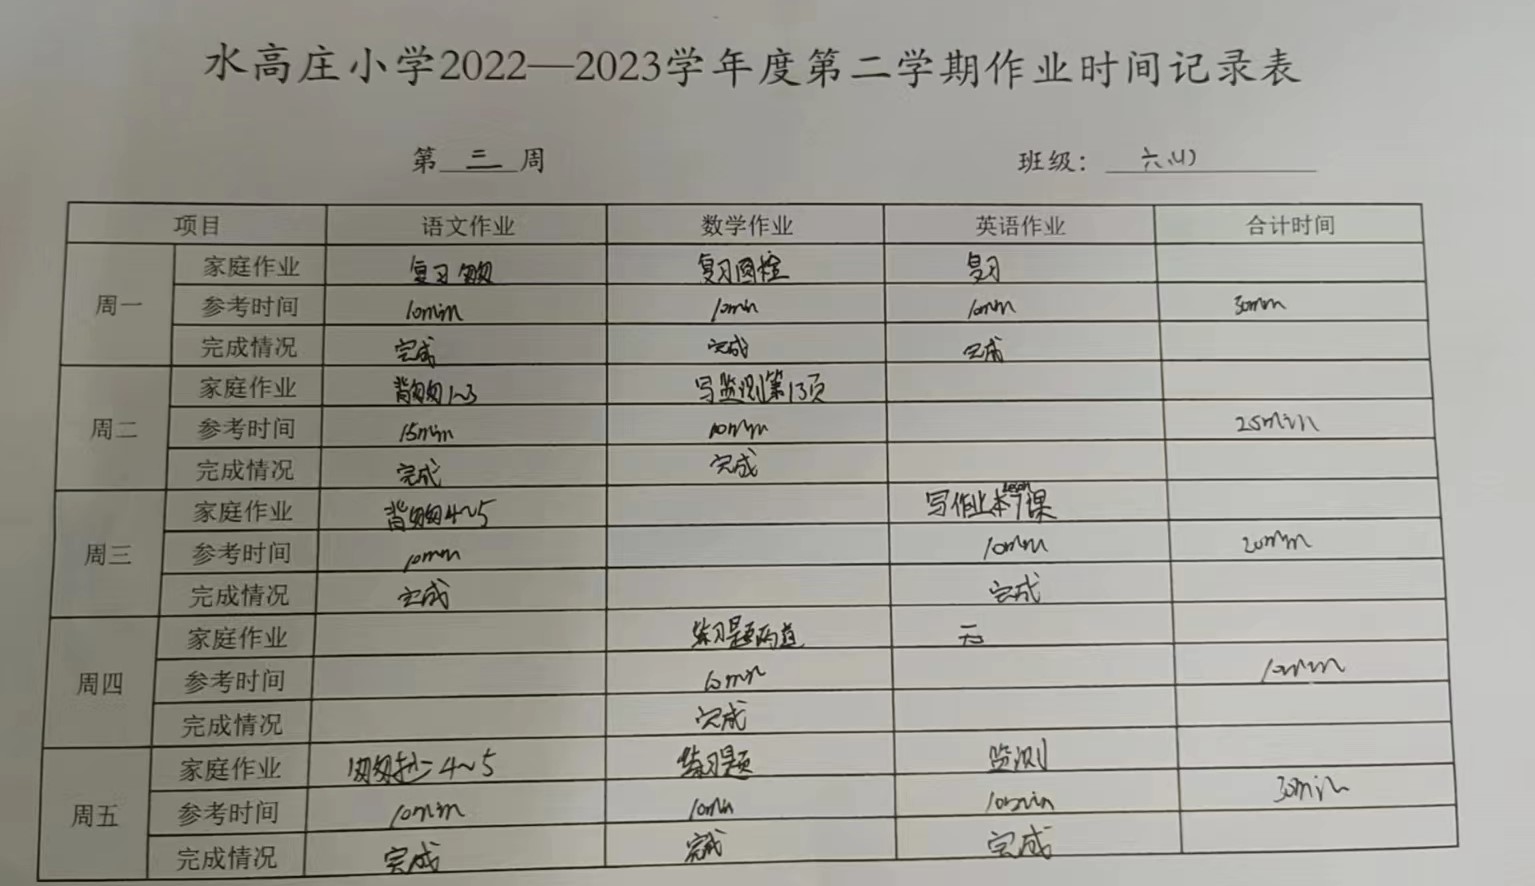 水高庄小学2022—2023学年度第二学期作业时间记录表
第三周 班级：六(1)
项目 语文作业 数学作业 英语作业 合计时间
周一
家庭作业 复习匆匆 复习圆柱 复习
参考时间 10min 10min 10min 30min
完成情况 完成 完成 完成
周二
家庭作业 背匆匆1~3 写监测第13页
参考时间 15min 10min 25min
完成情况 完成 完成
周三
家庭作业 背匆匆4~5 写作业本7课
参考时间 10min 10min 20min
完成情况 完成 完成
周四
家庭作业 练习题两道 无
参考时间 10min 10min
完成情况 完成
周五
家庭作业 匆匆抄二4~5 练习题 监测
参考时间 10min 10min 10min 30min
完成情况 完成 完成 完成